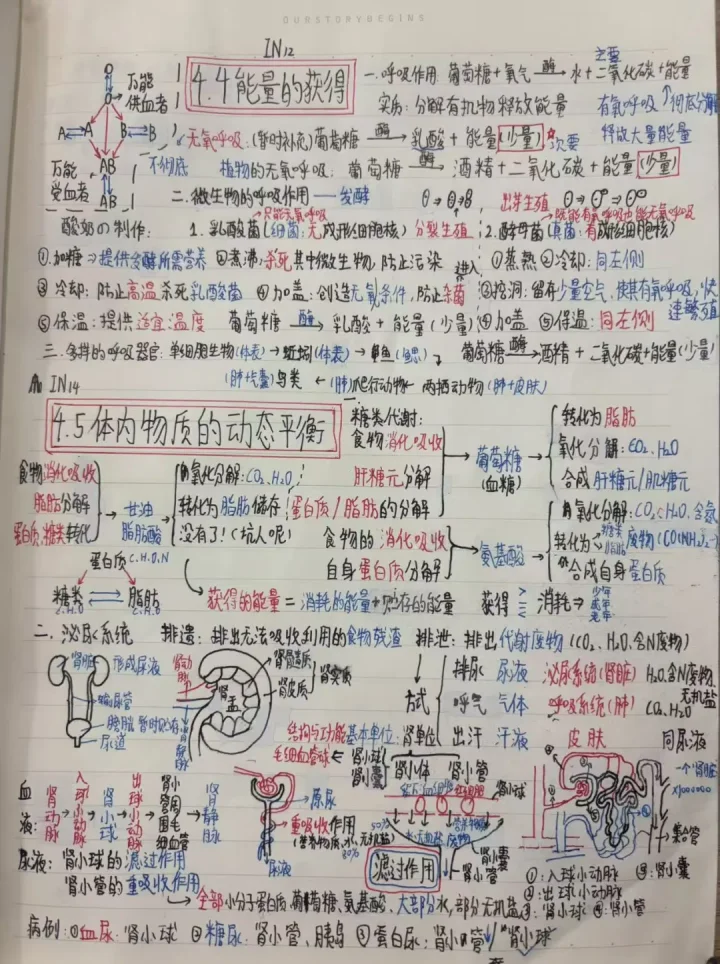 OURSTORYBEGINS
IN12
4.4能量的获得
O
万能
供血者
A A B B
AB
AB
万能
受血者
一.呼吸作用 葡萄糖+氧气 酶→ 水+二氧化碳+能量
主要
实质:分解有机物释放能量 有氧呼吸↑彻底分解
释放大量能量
无氧呼吸:(暂时补充)葡萄糖 酶→ 乳酸+能量(少量) 次要
不彻底 植物的无氧呼吸:葡萄糖 酶→ 酒精+二氧化碳+能量(少量)
二.微生物的呼吸作用——发酵 出芽生殖
只能无氧呼吸 既能有氧呼吸也能无氧呼吸
酸奶の制作: 1.乳酸菌(细菌:无成形细胞核)分裂生殖 2.酵母菌(真菌:有成形细胞核)
①加糖⇒提供发酵所需营养 ②煮沸,杀死其中微生物,防止污染 ①蒸熟 ②冷却:同左侧
进入
③冷却:防止高温杀死乳酸菌 ④加盖:创造无氧条件,防止杂菌 ③挖洞:留存少量空气,使其有氧呼吸,快速繁殖
⑤保温:提供适宜温度 葡萄糖 酶→ 乳酸+能量(少量) ④加盖 ⑤保温:同左侧
三.多样的呼吸器官:单细胞生物(体表)→蚯蚓(体表)→鱼(鳃) 葡萄糖 酶→ 酒精+二氧化碳+能量(少量)
(肺+气囊)鸟类←(肺)爬行动物←两栖动物(肺+皮肤)
IN14
4.5体内物质的动态平衡
一
糖类代谢:
食物消化吸收
肝糖元分解
蛋白质/脂肪的分解
葡萄糖
(血糖)
转化为脂肪
氧化分解:CO2、H2O
合成肝糖元/肌糖元
食物消化吸收
脂肪分解
蛋白质、糖类转化
甘油
脂肪酸
氧化分解:CO2、H2O
转化为脂肪储存
没有了!(坑人呢)
食物的消化吸收
自身蛋白质分解
氨基酸
氧化分解:CO2、H2O、含氮
废物(CO(NH2)2)
转化为 糖类
脂肪
合成自身蛋白质
蛋白质C.H.O.N
糖类
C.H.O
脂肪
C.H.O
获得的能量=消耗的能量+贮存的能量 获得 > = < 消耗⇒ 少年
成年
老年
二.泌尿系统 排遗:排出无法吸收利用的食物残渣 排泄:排出代谢废物(CO2、H2O、含N废物)
肾脏 形成尿液
输尿管
膀胱 暂时贮存
尿道
肾动脉
肾静脉
肾盂
肾髓质
肾皮质
肾实质
方式
排尿 尿液 泌尿系统(肾脏) H2O、含N废物、
无机盐
呼气 气体 呼吸系统(肺) CO2、H2O
出汗 汗液 皮肤 同尿液
结构与功能基本单位:肾单位
毛细血管球←肾小球
肾小囊
肾小体
肾小管
血液:肾动脉→入球小动脉→肾小球→出球小动脉→肾小管周围毛细血管→肾静脉
原尿
重吸收作用
(营养物质,水,无机盐)
尿液
肾小球
滤过作用
肾小囊
肾小管
一个肾脏
×1000000
集合管
①:入球小动脉 ⑤:肾小囊
②:出球小动脉
③:肾小球 ④:肾小管
尿液:肾小球的滤过作用
肾小管的重吸收作用
全部小分子蛋白质,葡萄糖、氨基酸、大部分水,部分无机盐
病例:①血尿:肾小球 ②糖尿:肾小管、胰岛 ③蛋白尿:肾小管/肾小球